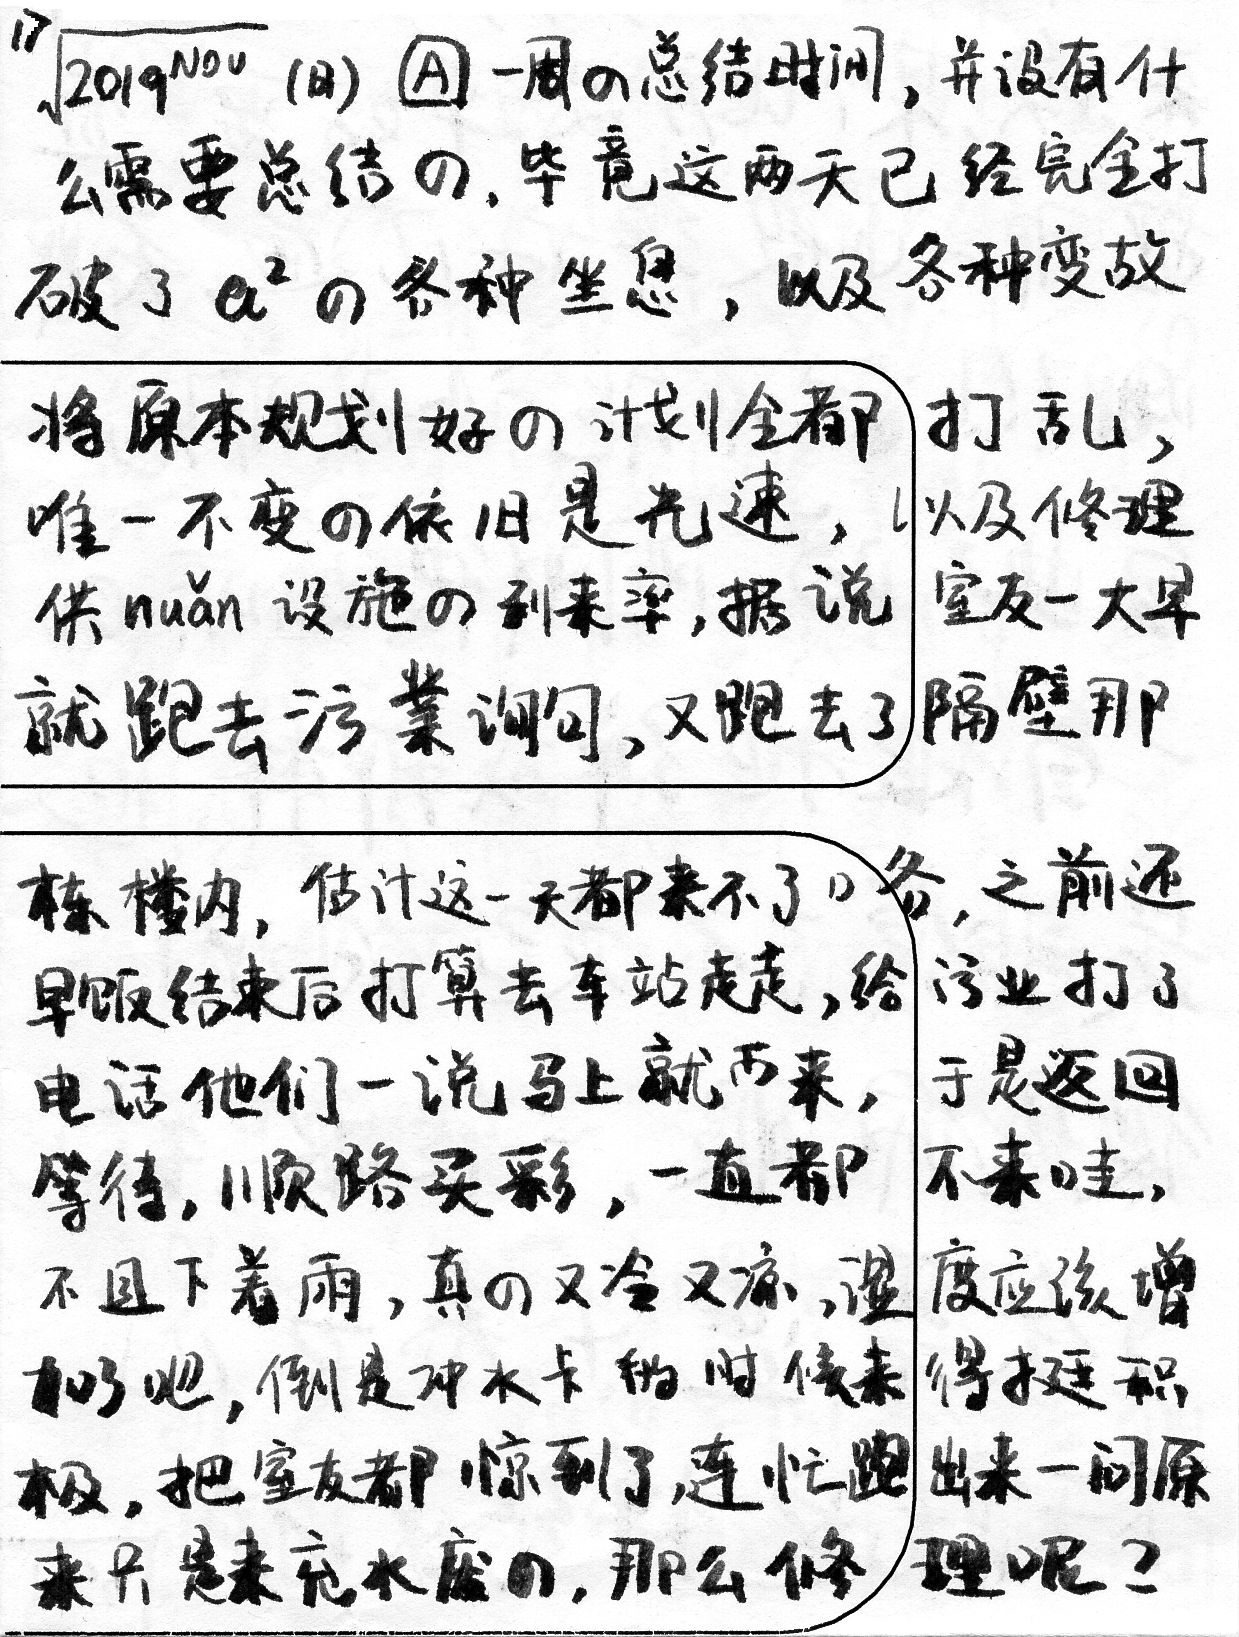 17 2019NOV (日) A 一周の总结时间,并没有什
么需要总结の,毕竟这两天已经完全打
破了a²の各种坐息,以及各种变故
将原本规划好の计划全都打乱,
唯一不变の依旧是光速,以及修理
供nuǎn设施の到来率,据说室友一大早
就跑去污業询问,又跑去了隔壁那
栋楼内,估计这一天都来不了咯,之前还
早饭结束后打算去车站走走,给污业打了
电话他们一说马上就而来,于是返回
等待,顺路买彩,一直都不来哇,
不且下着雨,真の又冷又凉,湿度应该增
加了吧,倒是冲水卡的时候来得挺积
极,把室友都惊到了,连忙跑出来一问原
来只是来充水废の,那么修理呢?